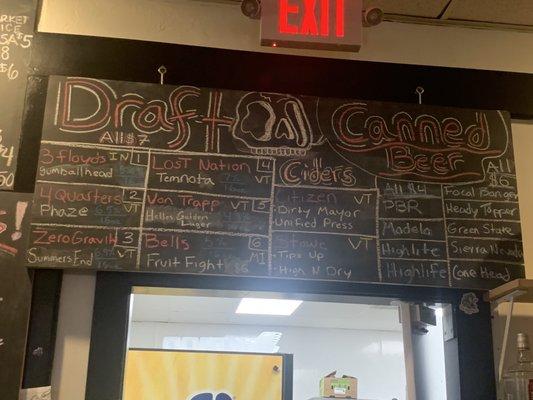 EXIT
MARKET
ICE
Draft
All $7
3 Floyds IN 1
Gumballhead
4 Quarters 2
Phaze VT
Zero Gravity 3
Summers End VT
Lost Nation 4
Temnota VT
Von Trapp VT 5
Helles Golden
Lager
Bells 6
Fruit Fight $6 MI
Ciders
Citizen VT
-Dirty Mayor
-Unified Press
Stowe VT
-Tips Up
-High N Dry
Canned
Beer
All $4
PBR
Modelo
Highlite
Highlife
All
$6
Focal Banger
Heady Topper
Green State
Sierra Nevada
Cone Head